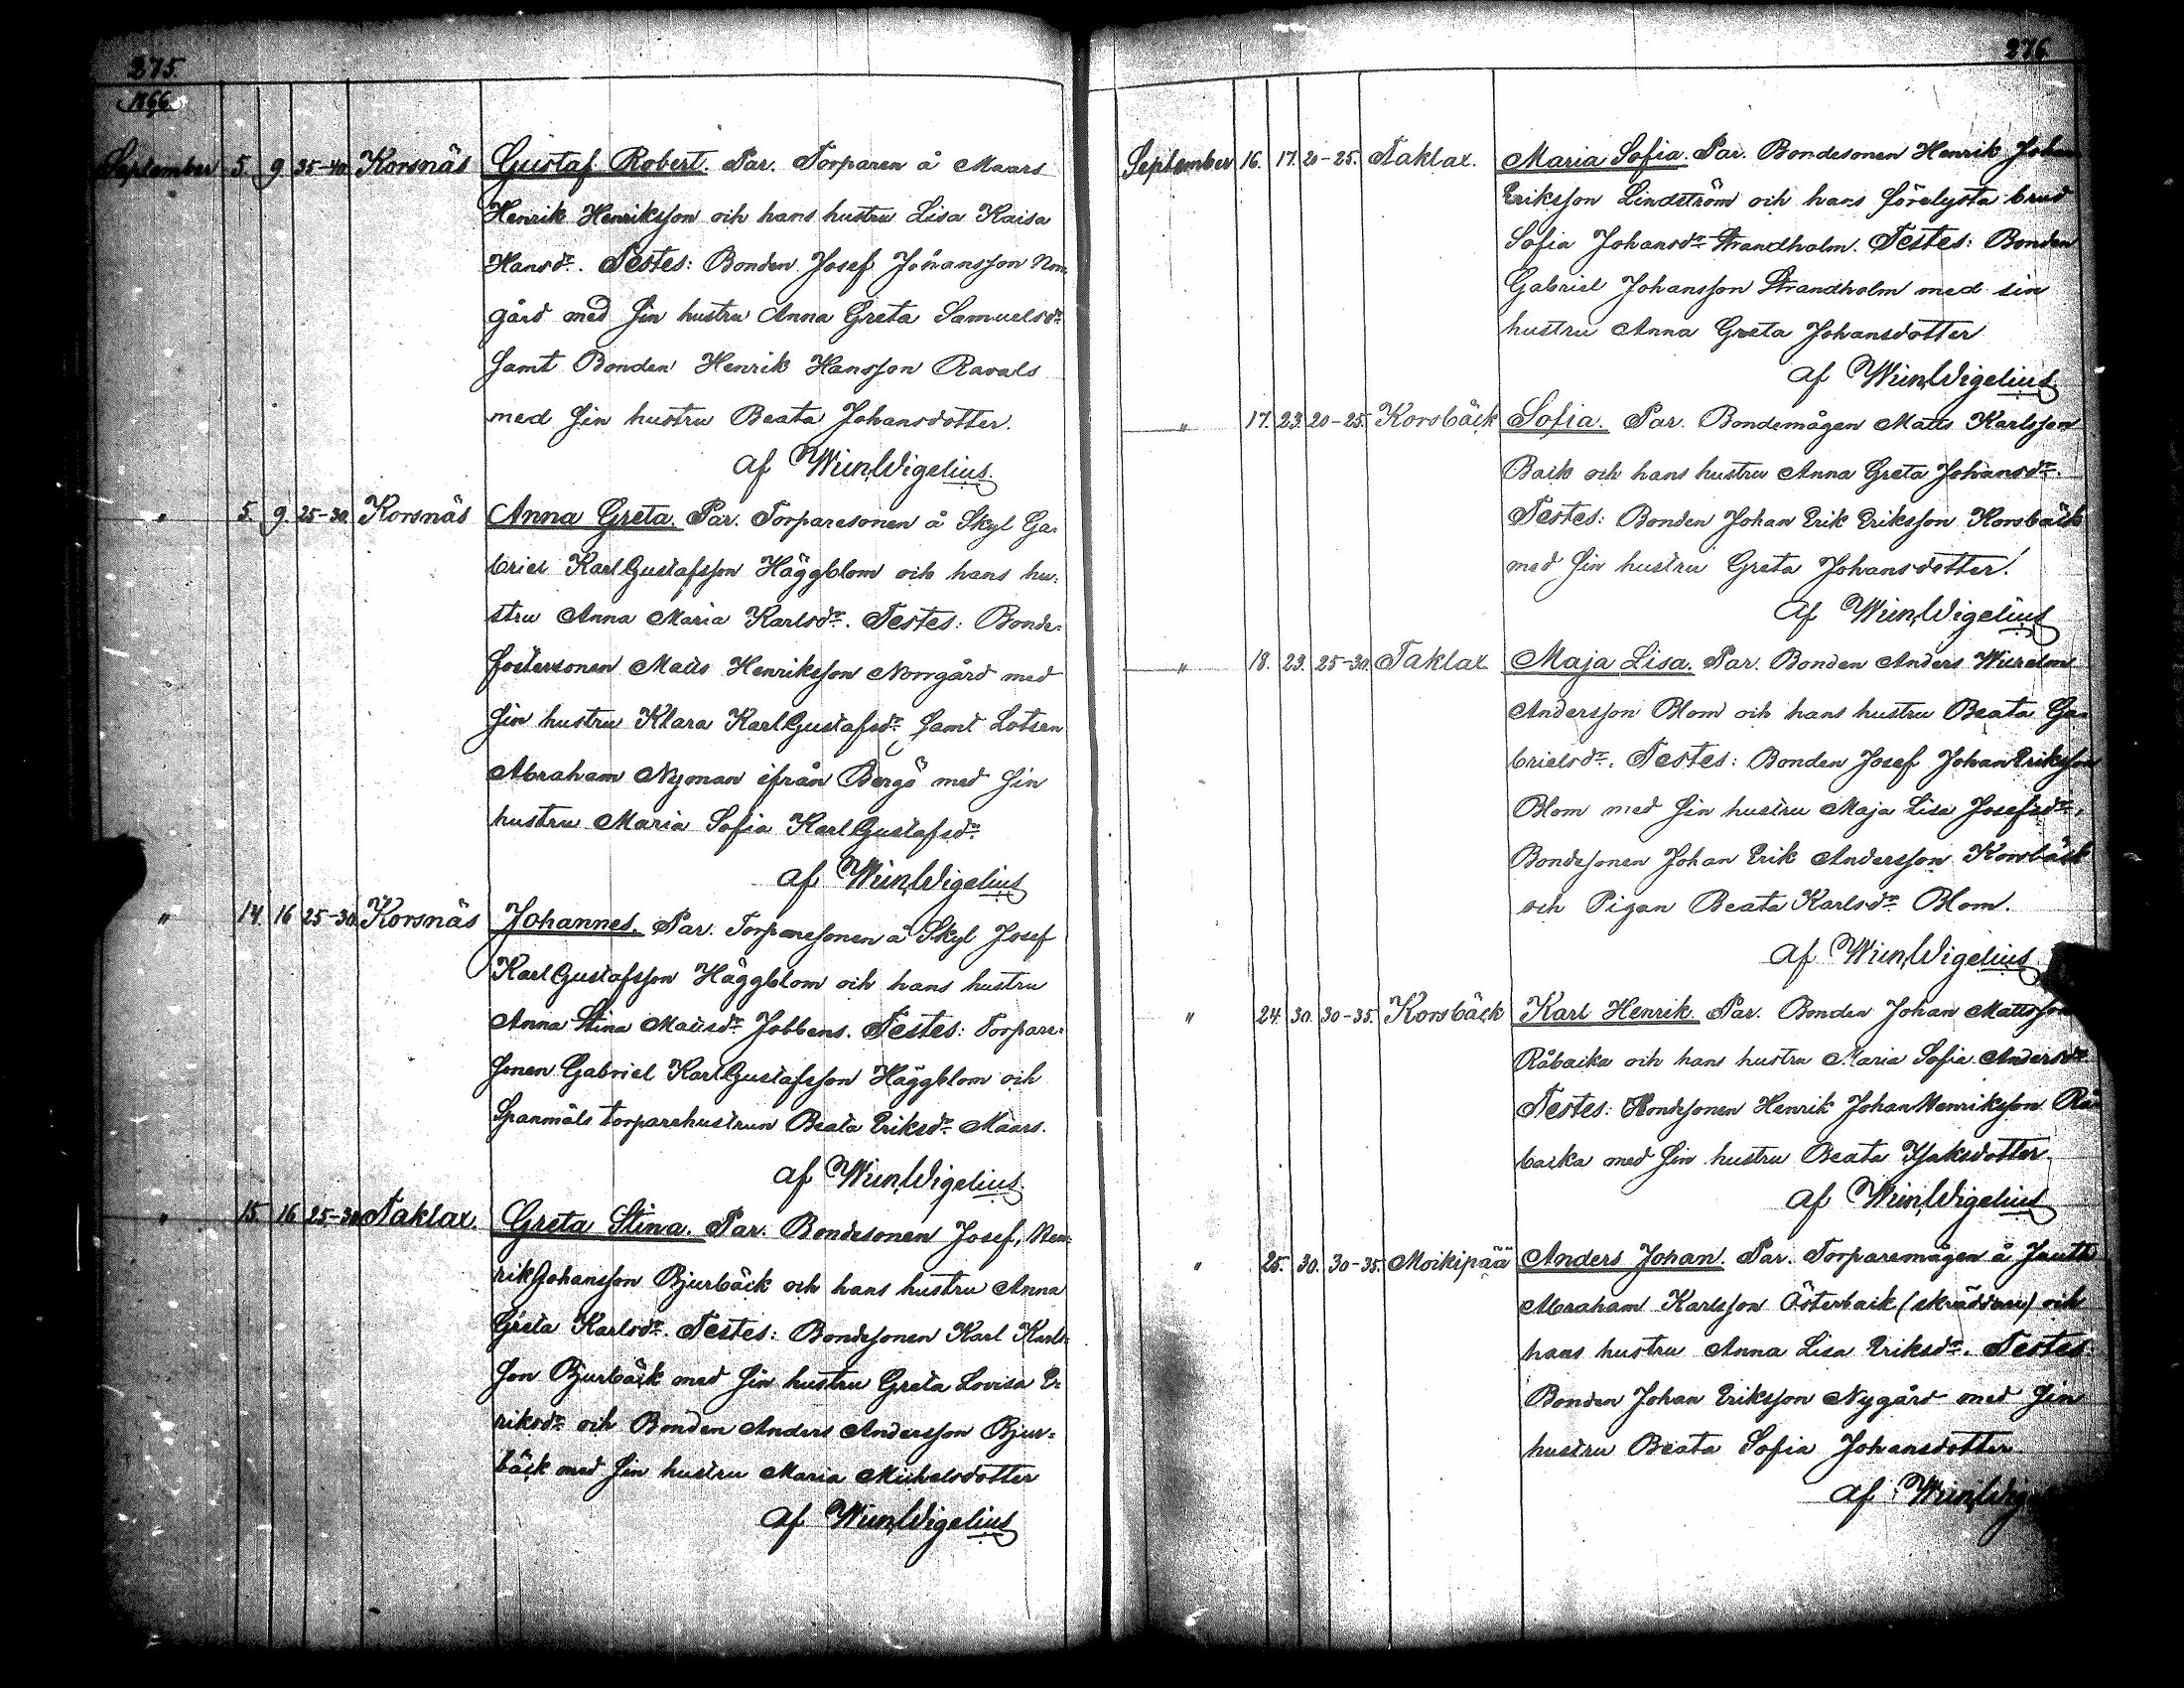 275.
1866.
September 5. 9 35-40 Korsnäs Gustaf Robert. Par. Torparen å Maars
Henrik Henriksson och hans hustru Lisa Kaisa
Hansdr. Testes: Bonden Josef Johansson Norr
gård med sin hustru Anna Greta Samuelsdr
samt Bonden Henrik Hansson Ravals
med sin hustru Beata Johansdotter.
af Wigelius
" 5. 9. 25-30. Korsnäs Anna Greta. Par. Torparesonen å Skyl Ga-
briel KarlGustafsson Häggblom och hans hu-
stru Anna Maria Karlsdr. Testes: Bonde-
fostersonen Matts Henriksson Norrgård med
sin hustru Klara KarlGustafsdr samt Lotsen
Abraham Nyman ifrån Bergö med sin
hustru Maria Sofia KarlGustafsdr
af Wigelius
" 14. 16 25-30 Korsnäs Johannes. Par. Torparesonen å Skyl Josef
KarlGustafsson Häggblom och hans hustru
Anna Stina Mattsdr Jobbens. Testes: Torpare-
sonen Gabriel KarlGustafsson Häggblom och
Spanmåls torparehustrun Beata Eriksdr Maars.
af Wigelius
" 15. 16 25-30 Taklax. Greta Stina. Par. Bondesonen Josef, Hen-
rikJohansson Bjurbäck och hans hustru Anna
Greta Karlsdr. Testes: Bondesonen Karl Karls-
son Bjurbäck med sin hustru Greta Lovisa E-
riksdr och Bonden Anders Andersson Bjur-
bäck med sin hustru Maria Michelsdotter
af Wigelius
276.
September 16. 17. 20-25. Taklax. Maria Sofia. Par. Bondesonen Henrik Johan
Eriksson Lindström och hans förelysta brud
Sofia Johansdr Strandholm. Testes: Bonden
Gabriel Johansson Strandholm med sin
hustru Anna Greta Johansdotter
af Wigelius
" 17. 23. 20-25. Korsbäck Sofia. Par. Bondemågen Matts Karlsson
Back och hans hustru Anna Greta Johansdr.
Testes: Bonden Johan Erik Eriksson Korsbäck
med sin hustru Greta Johansdotter.
af Wigelius
" 18. 23. 25-30. Taklax Maja Lisa. Par. Bonden Anders Wilhelm
Andersson Blom och hans hustru Beata Ga-
brielsdr. Testes: Bonden Josef JohanEriksson
Blom med sin hustru Maja Lisa Josefsdr,
Bondesonen Johan Erik Andersson Korsbäck
och Pigan Beata Karlsdr Blom.
af Wigelius
" 24. 30. 30-35. Korsbäck Karl Henrik. Par. Bonden Johan Mattsson
Råbacka och hans hustru Maria Sofia Andersdr
Testes: Bondesonen Henrik JohanHenriksson Rå-
backa med sin hustru Beata Isaksdotter.
af Wigelius
" 25. 30. 30-35. Moikipää Anders Johan. Par. Torparemågen å Jauth
Abraham Karlsson Österback (skräddare) och
hans hustru Anna Lisa Eriksdr. Testes
Bonden Johan Eriksson Nygård med sin
hustru Beata Sofia Johansdotter
af